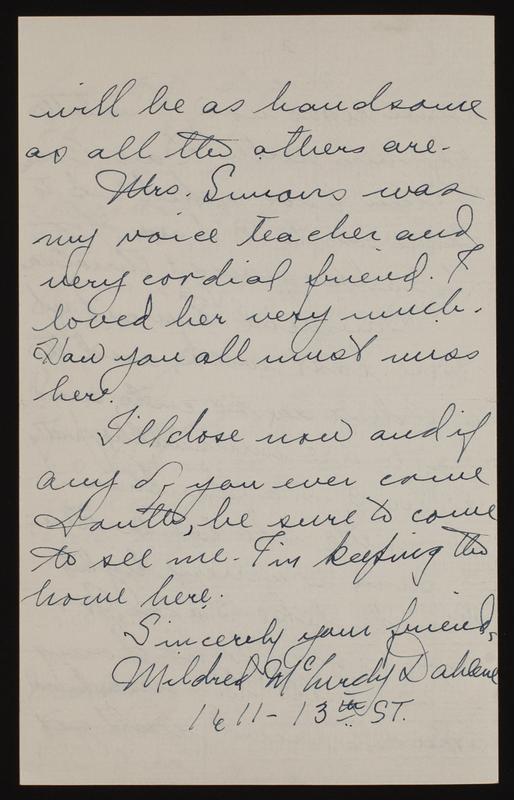 will be as handsome
as all the others are.
Mrs. Simons was
my voice teacher and
very cordial friend. I
loved her very much.
How you all must miss
her.
I'll close now and if
any of you ever come
South, be sure to come
to see me. I'm keeping the
home here.
Sincerely your friend,
Mildred McCurdy
1611-13th ST.